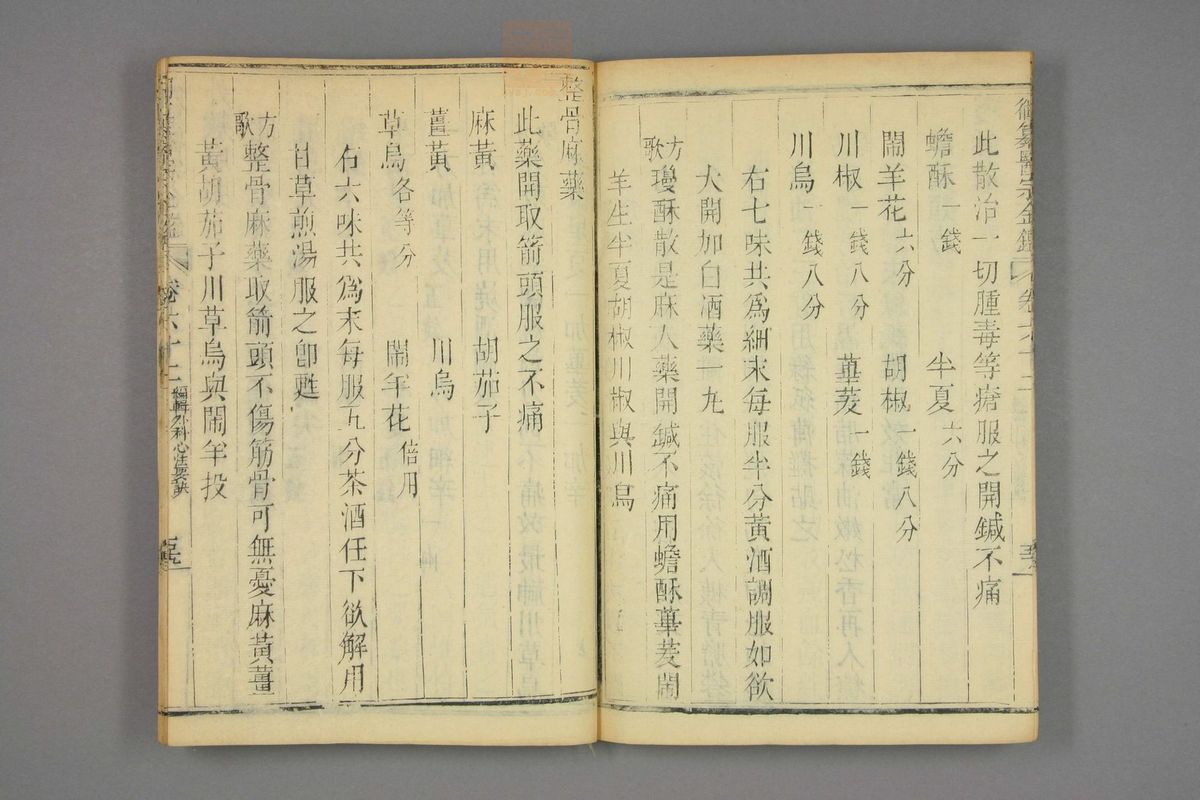 御纂醫宗金鑑 卷六十二
此散治一切腫毒等瘡服之開鍼不痛
蟾酥一錢 半夏六分
鬧羊花六分 胡椒一錢八分
川椒一錢八分 蓽茇一錢
川烏一錢八分
右七味共爲細末每服半分黃酒調服如欲
大開加白酒藥一丸
方歌 瓊酥散是麻人藥開鍼不痛用蟾酥蓽茇鬧
羊生半夏胡椒川椒與川烏
整骨麻藥
此藥開取箭頭服之不痛
麻黃 胡茄子
薑黃 川烏
草烏各等分 鬧羊花倍用
右六味共爲末每服五分茶酒任下欲解用
甘草煎湯服之卽甦
方歌 整骨麻藥取箭頭不傷筋骨可無憂麻黃薑
黃胡茄子川草烏與鬧羊投
卷六十二 編輯外科心法要訣